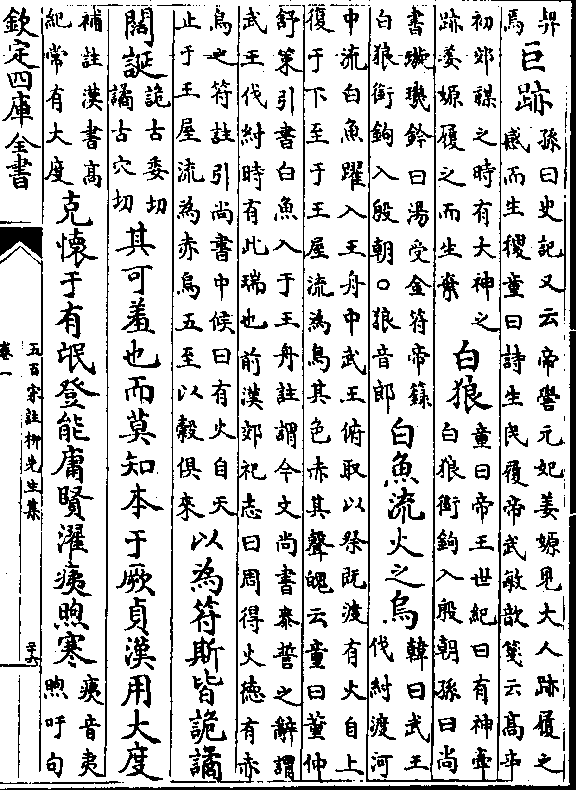 焉
巨跡
孫曰史記又云帝嚳元妃姜嫄見大人跡履之
感而生稷童曰詩生民履帝武敏歆箋云髙辛
初郊禖之時有大神之
跡姜嫄履之而生棄
白狼
童曰帝王世紀曰有神牽
白狼銜鉤入殷朝孫曰尚
書璇璣鈐曰湯受金符帝籙
白狼銜鉤入殷朝○狼音郎
白魚流火之烏
韓曰武王
伐紂渡河
中流白魚躍入王舟中武王俯取以祭既渡有火自上
復于下至于王屋流為烏其色赤其聲魄云童曰董仲
舒策引書白魚入于王舟註謂今文尚書泰誓之辭謂
武王伐紂時有此瑞也前漢郊祀志曰周得火德有赤
烏之符註引尚書中候曰有火自天
止于王屋流為赤烏五至以榖俱來
以為符斯皆詭譎
闊誕
詭古委切
譎古穴切
其可羞也而莫知本于厥貞漢用大度
補註漢書髙
紀常有大度
克懷于有氓登能庸賢濯痍煦寒
痍音夷
煦吁句
欽定四庫全書
五百家註栁先生集
卷一